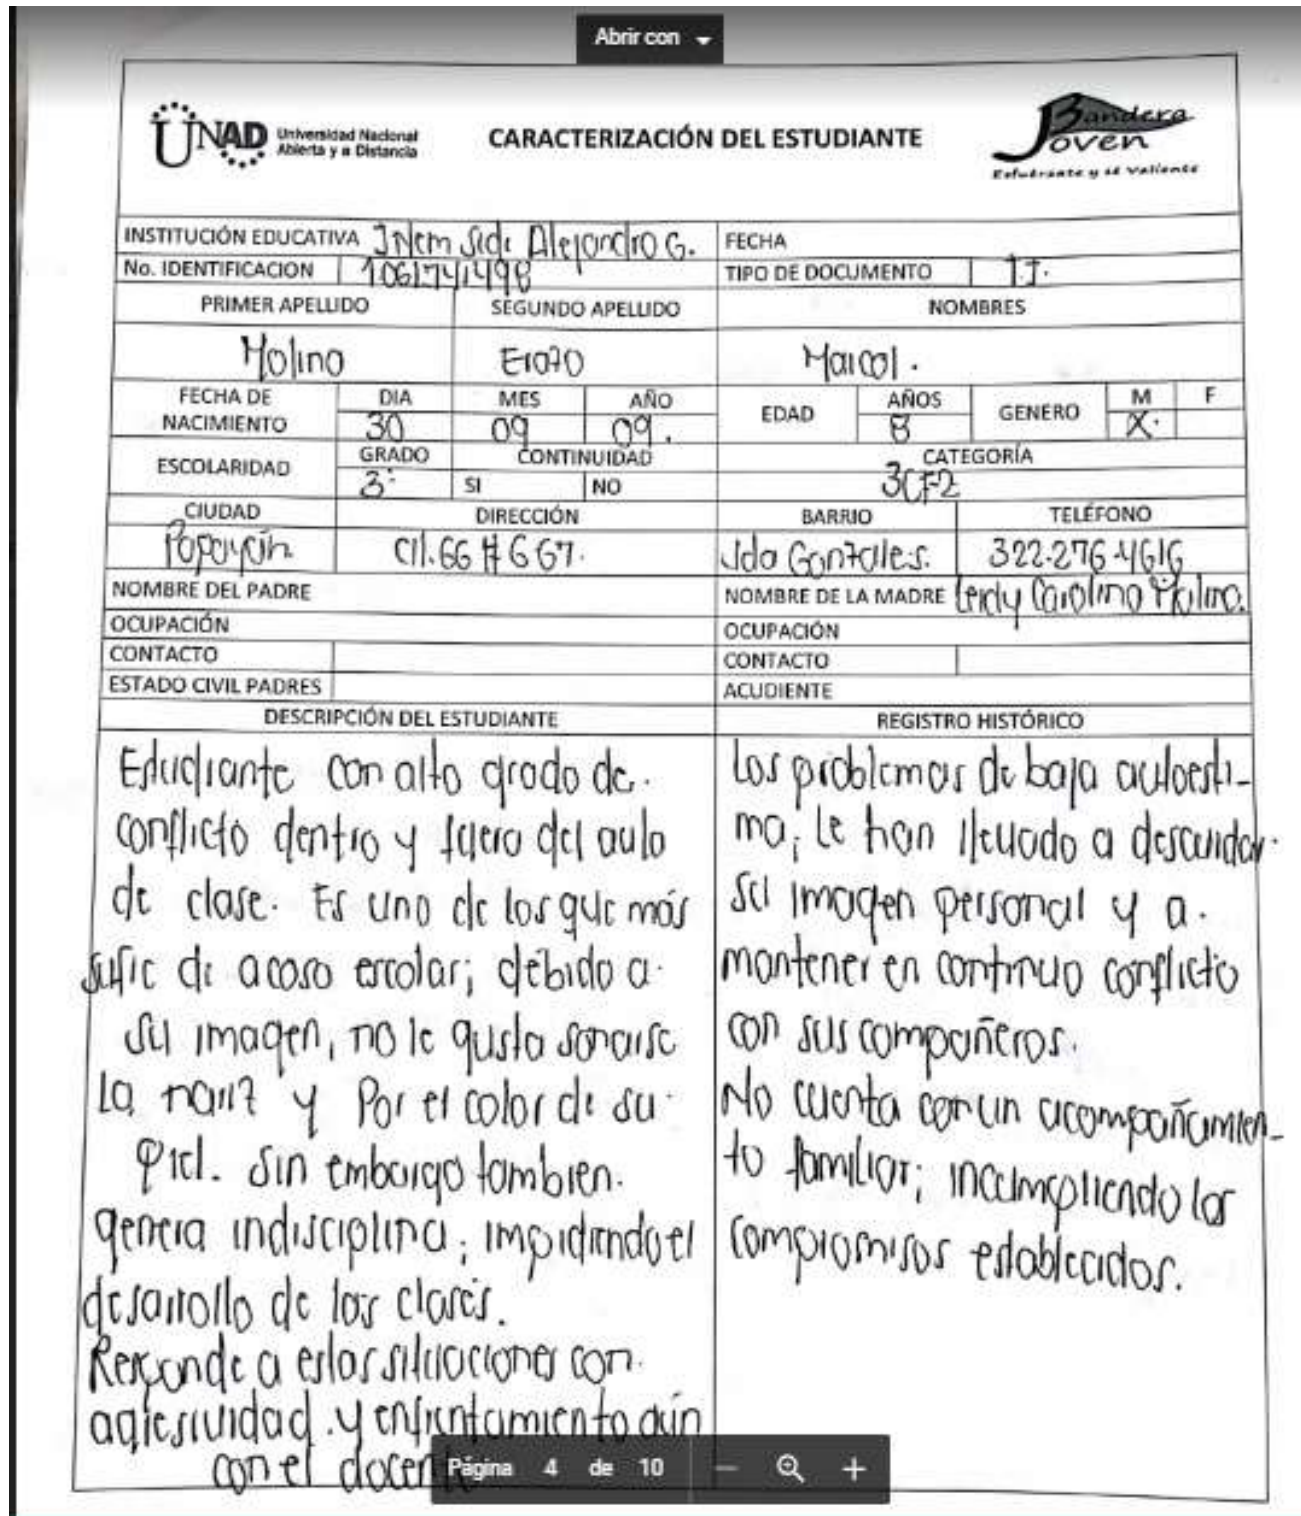 Abrir con
UNAD Universidad Nacional
Abierta y a Distancia
CARACTERIZACIÓN DEL ESTUDIANTE
Bandera
Joven
Esfuérzante y sé valiente
INSTITUCIÓN EDUCATIVA INem Sede Alejandro G. FECHA
No. IDENTIFICACION 1061741498 TIPO DE DOCUMENTO T.I.
PRIMER APELLIDO SEGUNDO APELLIDO NOMBRES
Molina Erazo Maicol.
FECHA DE NACIMIENTO DIA MES AÑO EDAD AÑOS GENERO M F
30 09 09. 8 X.
ESCOLARIDAD GRADO CONTINUIDAD CATEGORÍA
3° SI NO 3CF2
CIUDAD DIRECCIÓN BARRIO TELÉFONO
Popayán Cll. 66 # 667. Ida Gonzales. 322-276-4616
NOMBRE DEL PADRE NOMBRE DE LA MADRE Leidy Carolina Molina.
OCUPACIÓN OCUPACIÓN
CONTACTO CONTACTO
ESTADO CIVIL PADRES ACUDIENTE
DESCRIPCIÓN DEL ESTUDIANTE REGISTRO HISTÓRICO
Estudiante con alto grado de.
conflicto dentro y fuera del aula
de clase. Es uno de los que más
sufre de acoso escolar; debido a.
su imagen, no le gusta sonarse
La nariz y Por el color de su.
Piel. Sin embargo tambien.
genera indisciplina; impidiendo el
desarrollo de las clases.
Responde a estas situaciones con.
agresividad. y enfrentamiento aún
con el docent
Los problemas de baja autoesti-
ma; Le han llevado a descuidar.
su imagen personal y a.
mantener en continuo conflicto
con sus compañeros.
No cuenta con un acompañamien-
to familiar; incumpliendo los
compromisos establecidos.
Página 4 de 10